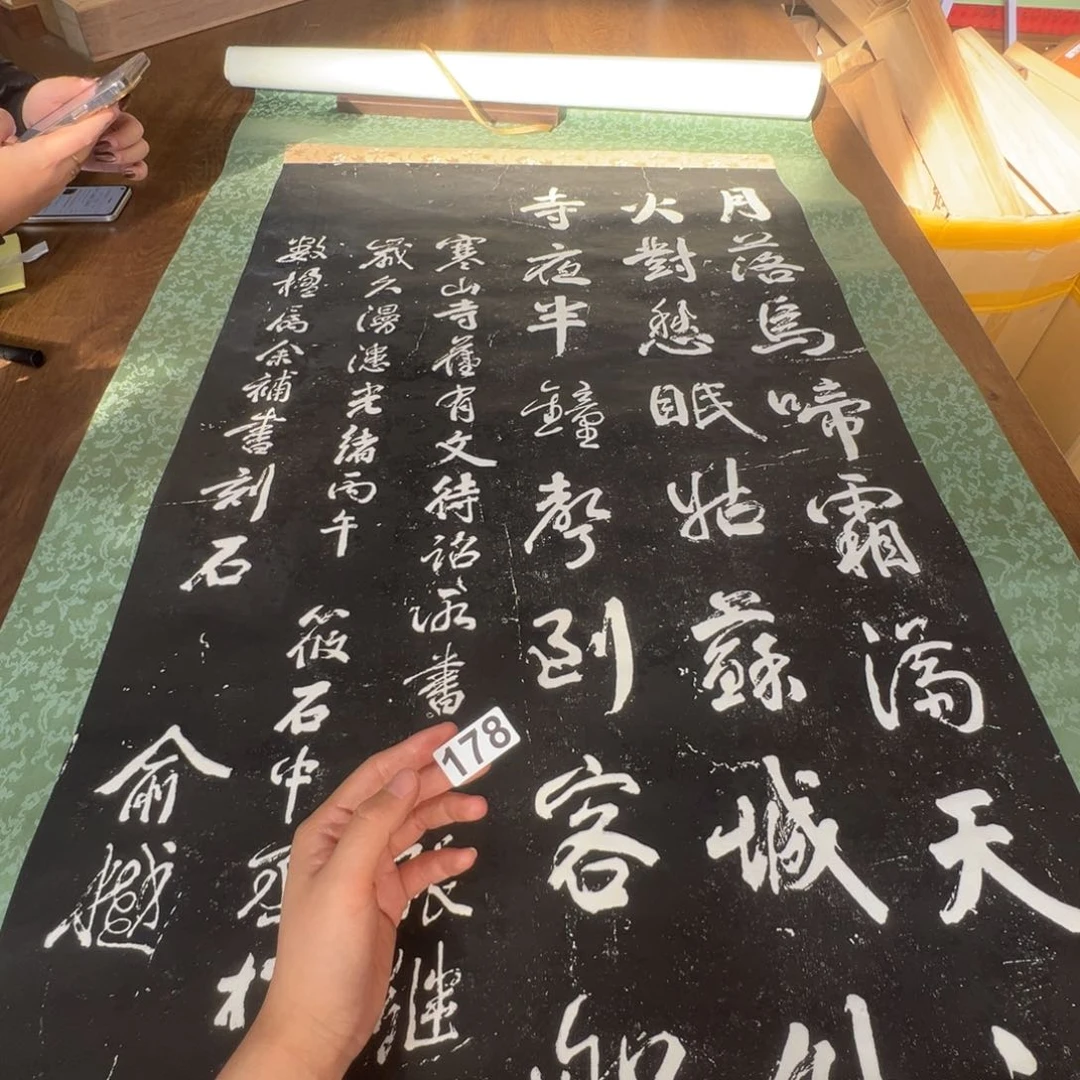 月落烏啼霜滿天
火對愁眠姑蘇城外
寺夜半鐘聲到客船
寒山寺舊有文待詔所書張繼
歲久漫漶光緒丙午筱石中丞
數楹屬余補書刻石
俞樾
178